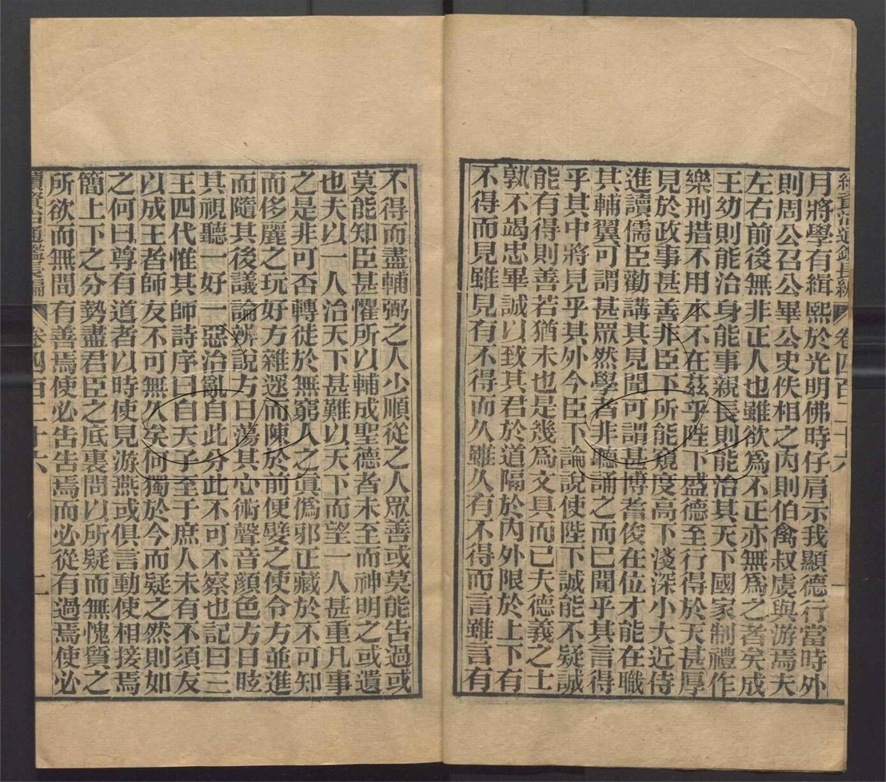 續資治通鑑長編 卷四百二十六 一
月將學有緝熙於光明佛時仔肩示我顯德行當時外
則周公召公畢公史佚相之內則伯禽叔虞與游焉夫
左右前後無非正人也雖欲爲不正亦無爲之者矣成
王幼則能治身能事親長則能治其天下國家制禮作
樂刑措不用本不在茲乎陛下盛德至行得於天甚厚
見於政事甚善非臣下所能窺度高下淺深小大近侍
進讀儒臣勸講其見聞可謂甚博耆俊在位才能在職
其輔翼可謂甚眾然學者非聽誦之而已聞乎其言得
乎其中將見乎其外今臣下論說使陛下誠能不疑誠
能有得則善若猶未也是幾爲文具而已夫德義之士
孰不竭忠畢誠以致其君於道隔於內外限於上下有
不得而見雖見有不得而久雖久有不得而言雖言有
不得而盡輔弼之人少順從之人眾善或莫能告過或
莫能知臣甚懼所以輔成聖德者未至而神明之或遺
也夫以一人治天下甚難以天下而望一人甚重凡事
之是非可否轉徒於無窮人之眞僞邪正藏於不可知
而侈麗之玩好方雜遝而陳於前便嬖之使令方並進
而隨其後議論辨說方日蕩其心術聲音顏色方日眩
其視聽一好一惡治亂自此分此不可不察也記曰三
王四代惟其師詩序曰自天子至于庶人未有不須友
以成王者師友不可無久矣何獨於今而疑之然則如
之何曰尊有道者以時使見游燕或俱言動使相接焉
簡上下之分勢盡君臣之底裏問以所疑而無愧質之
所欲而無間有善焉使必告告焉而必從有過焉使必
續資治通鑑長編 卷四百二十六 二